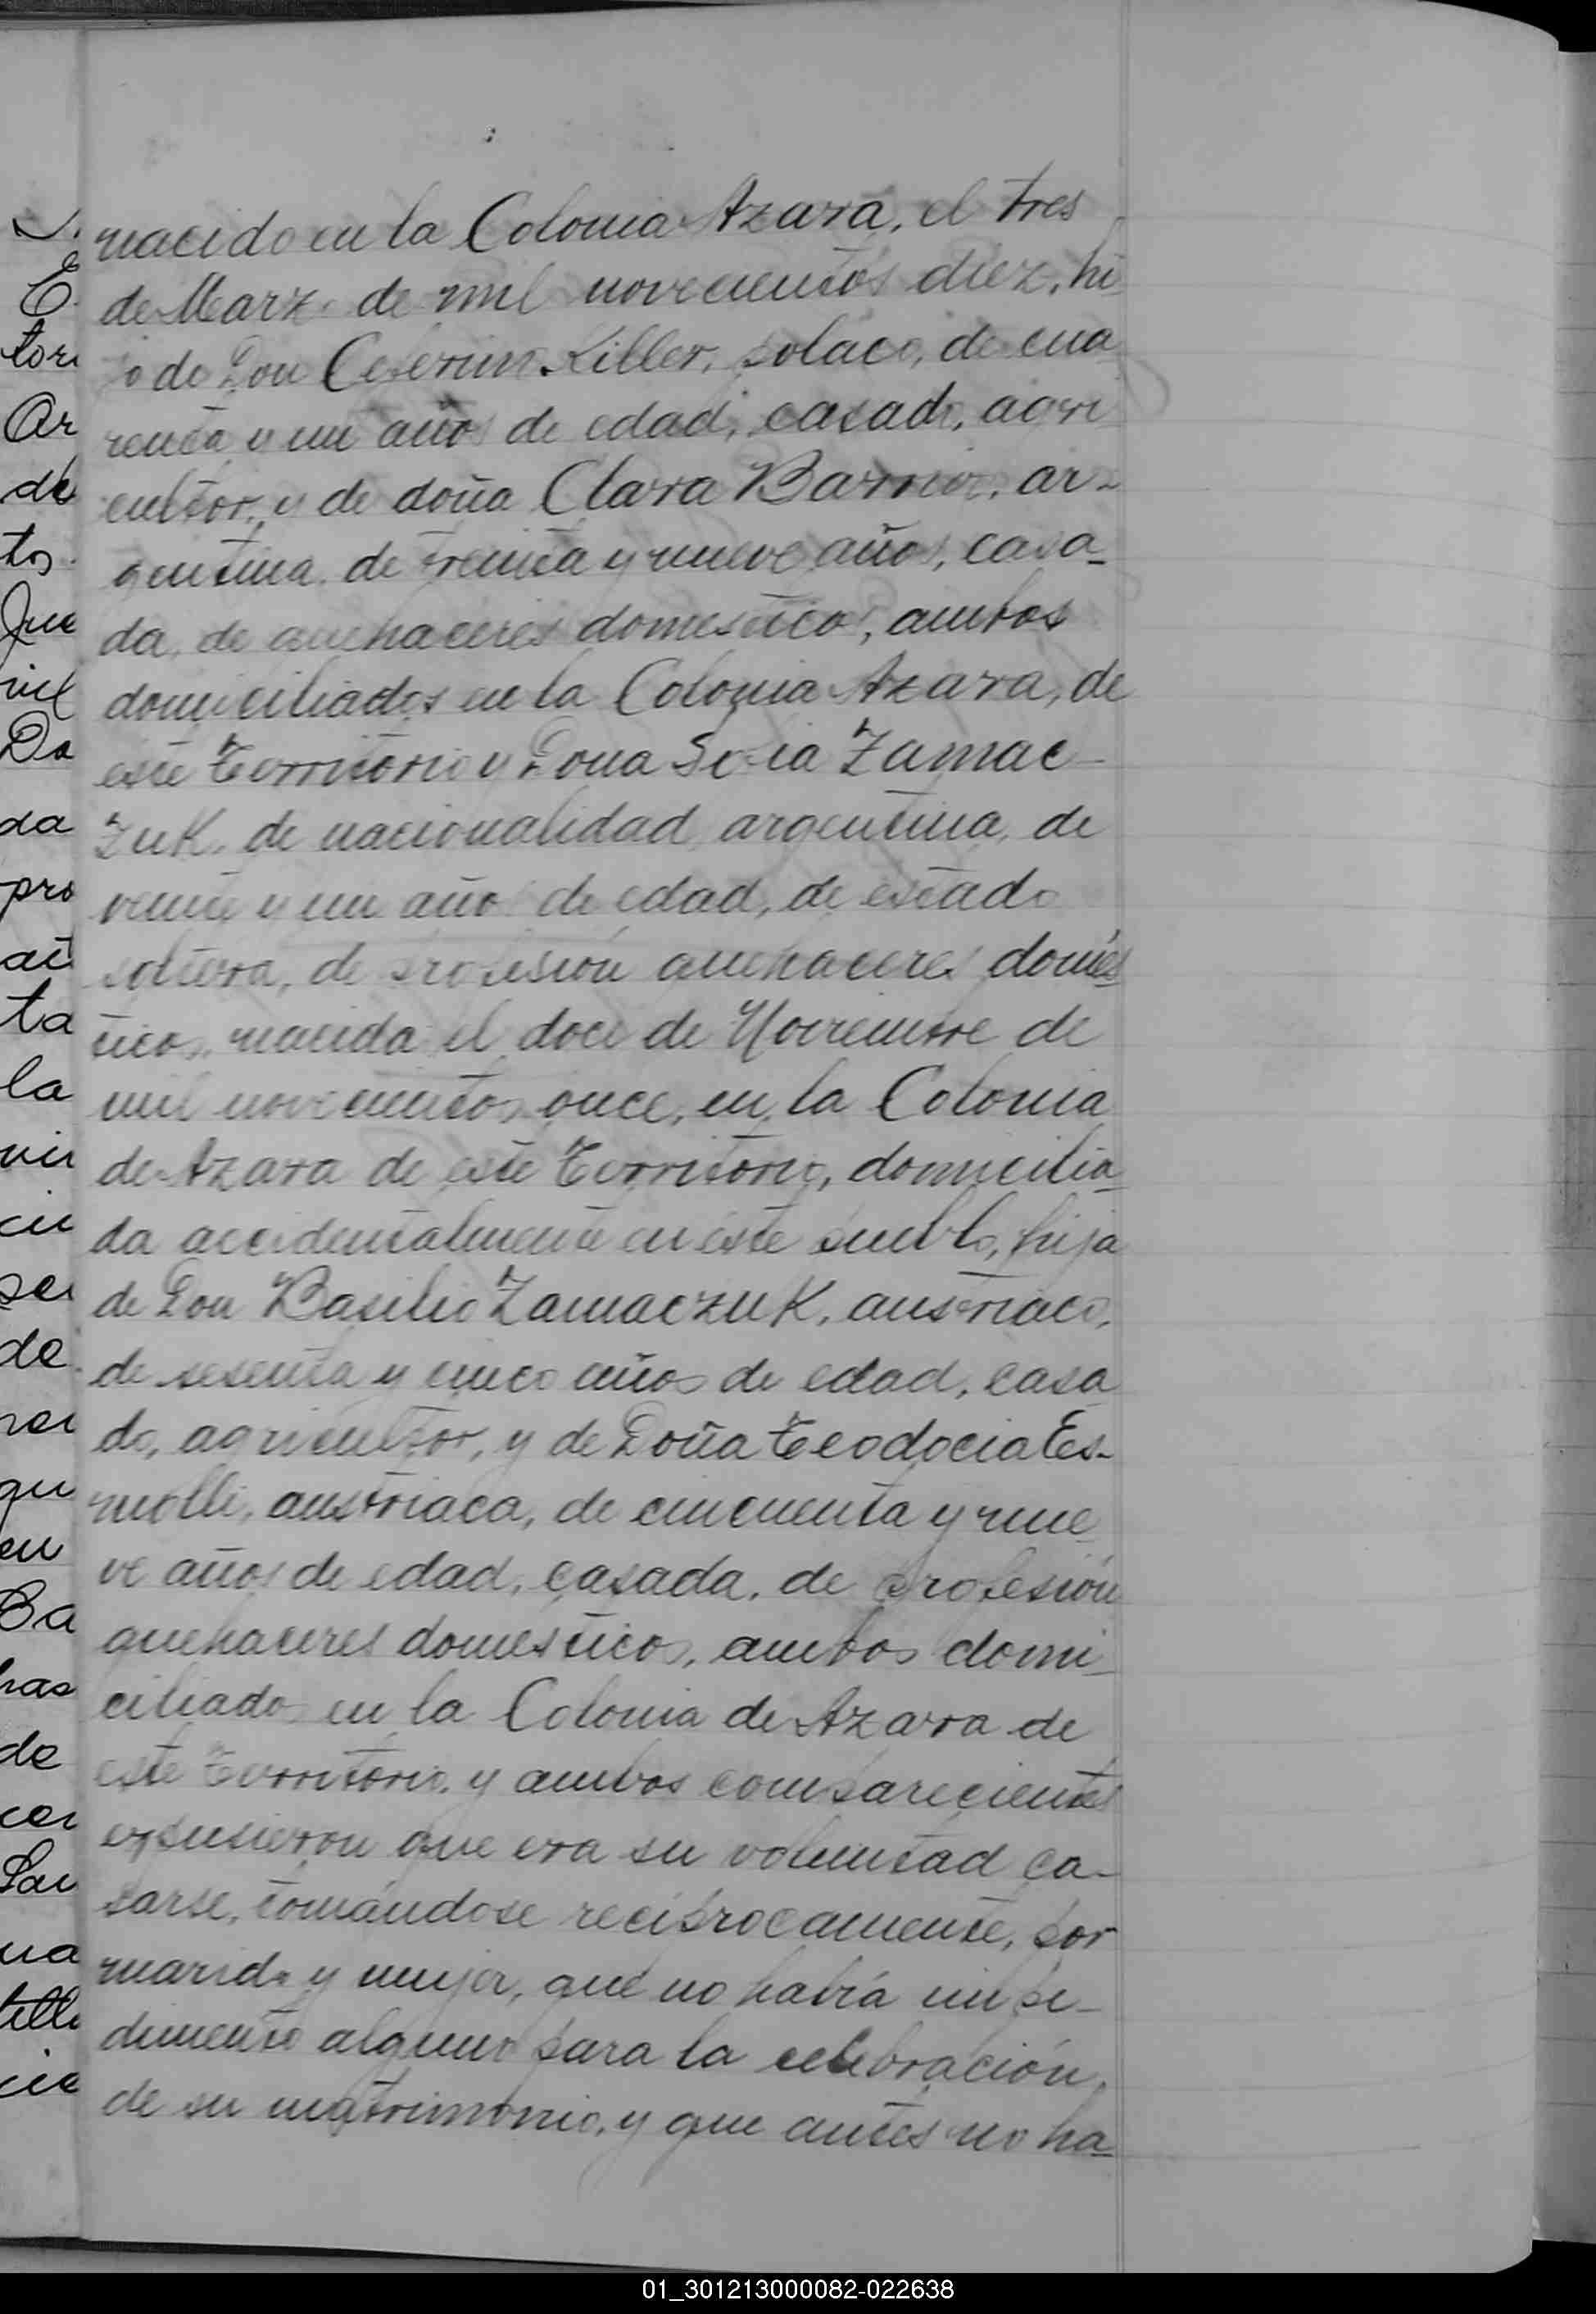 nacido en la Colonia Azara, el tres
de Marzo de mil novecientos diez, hi
jo de Don Ceferino Killer, polaco, de cua
renta y un años de edad, casado, agri
cultor, y de doña Clara ar-
gentina de treinta y nueve años, casa-
da, de quehaceres domesticos, ambos
domiciliados en la Colonia Azara, de
este Territorio y Doña Sofia Zamac-
zuk, de nacionalidad argentina, de
veinte y un años de edad, de estado
soltera, de profesión quehaceres domés
ticos, nacida el doce de Noviembre de
mil novecientos once, en la Colonia
de Azara de este Territorio, domicilia-
da accidentalmente en éste pueblo, hija
de Don Basilio Zamaczuk, austriaco,
de sesenta y cinco años de edad, casa
do, agricultor, y de Doña Teodocia Es-
molli, austriaca, de cincuenta y nue
ve años de edad, casada, de profesión
quehaceres domésticos, ambos domi-
ciliados en la Colonia de Azara de
este Territorio, y ambos comparecientes
expusieron que era su voluntad ca-
sarse, tomándose recíprocamente, por
marido y mujer, que no había impe-
dimento alguno para la celebración
de su matrimonio, y que antes no ha-
01_301213000082-022638